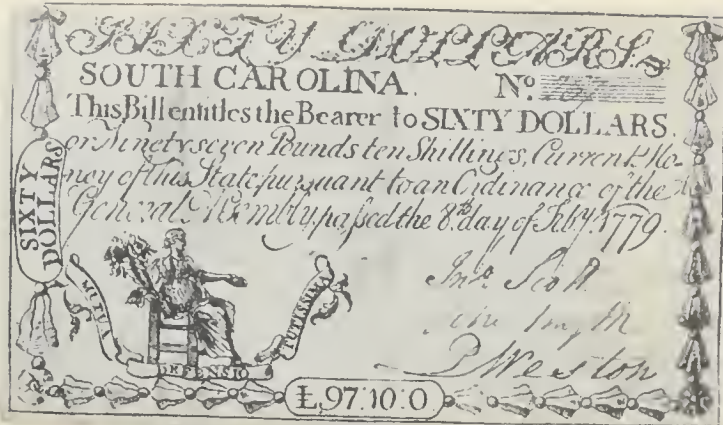 SIXTY DOLLARS.
SOUTH CAROLINA. No.
This Bill entitles the Bearer to SIXTY DOLLARS.
or Ninety seven Pounds ten Shillings, Current Mo-
ney of this State pursuant to an Ordinance of the
General Assembly, passed the 8th. day of Feby. 1779.
SIXTY
DOLLARS
Jno. Scott
P Weston
MUTUA
DEFENSIO
TUTISSIMA
£,97:10:0